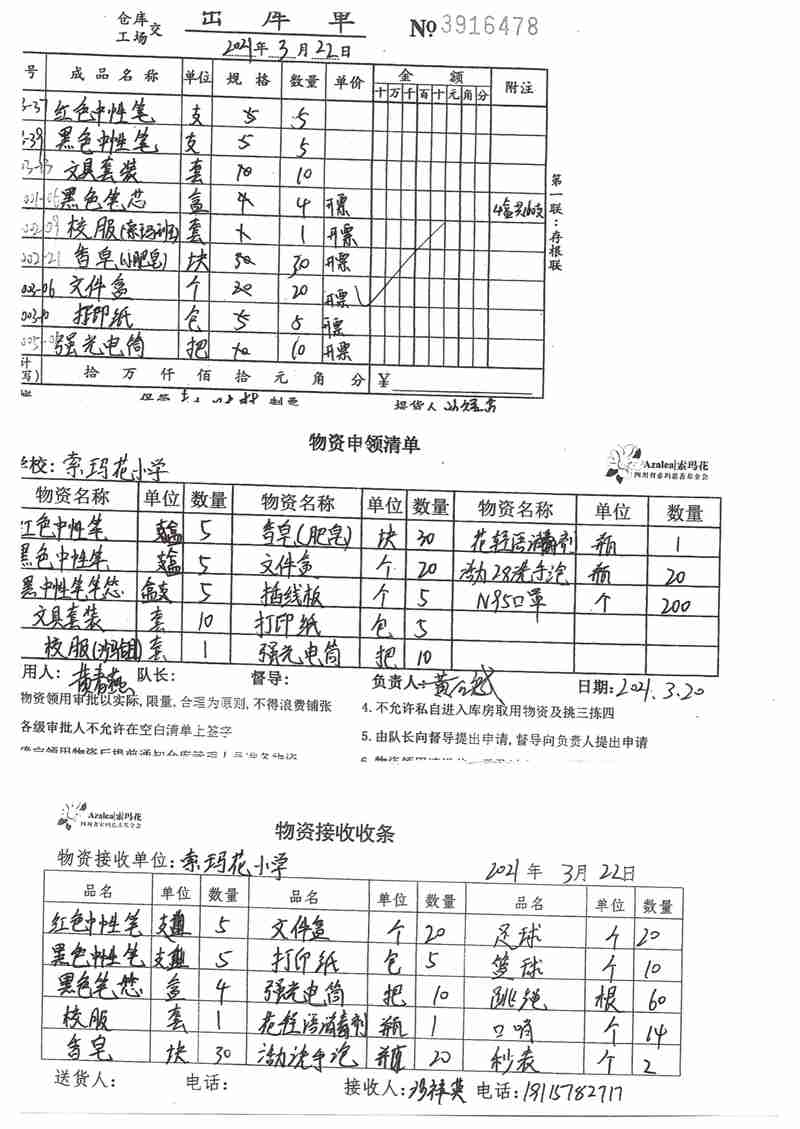 仓库 工场 交 出库单 No 3916478
2021年3月22日
号 成品名称 单位 规格 数量 单价 金额 附注
十 万 千 百 十 元 角 分
红色中性笔 支 5 5
黑色中性笔 支 5 5
文具套装 套 10 10
黑色笔芯 盒 4 4 开票
校服(索玛班) 套 1 开票
香皂(肥皂) 块 30 30 开票
文件盒 个 20 20 开票
打印纸 包 5 5 开票
强光电筒 把 10 10 开票
拾 万 仟 佰 拾 元 角 分 ¥
第一联:存根联
提货人
物资申领清单
Azalea|索玛花
四川省索玛慈善基金会
校:索玛花小学
物资名称 单位 数量 物资名称 单位 数量 物资名称 单位 数量
红色中性笔 盒 5 香皂(肥皂) 块 30 花轻语消毒剂 瓶 1
黑色中性笔 盒 5 文件盒 个 20 洗手泡 瓶 20
黑中性笔笔芯 盒 5 插线板 个 5 N95口罩 个 200
文具套装 套 10 打印纸 包 5
校服 套 1 强光电筒 把 10
用人: 队长: 督导: 负责人: 日期:2021.3.20
物资领用审批以实际,限量,合理为原则,不得浪费铺张 4.不允许私自进入库房取用物资及挑三拣四
各级审批人不允许在空白清单上签字 5.由队长向督导提出申请,督导向负责人提出申请
Azalea|索玛花
四川省索玛慈善基金会
物资接收收条
物资接收单位:索玛花小学 2021年3月22日
品名 单位 数量 品名 单位 数量 品名 单位 数量
红色中性笔 支 5 文件盒 个 20 足球 个 20
黑色中性笔 支 5 打印纸 包 5 篮球 个 10
黑色笔芯 盒 4 强光电筒 把 10 跳绳 根 60
校服 套 1 花轻语消毒剂 瓶 1 口哨 个 14
香皂 块 30 洗手泡 瓶 20 秒表 个 2
送货人: 电话: 接收人: 电话:18115782717